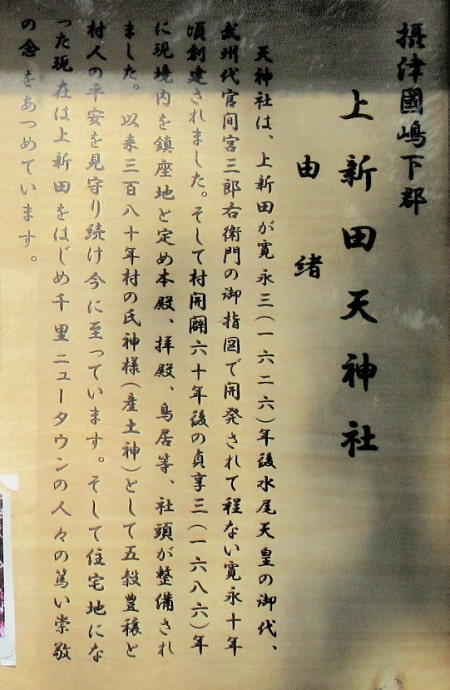 摂津國嶋下郡
上新田天神社
由緒
天神社は、上新田が寛永三(一六二六)年後水尾天皇の御代、
武州代官間宮三郎右衛門の御指図で開発されて程ない寛永十年
頃創建されました。そして村開闢六十年後の貞享三(一六八六)年
に現境内を鎮座地と定め本殿、拝殿、鳥居等、社頭が整備され
ました。以来三百八十年村の氏神様(産土神)として五穀豊穣と
村人の平安を見守り続け今に至っています。そして住宅地にな
った現在は上新田をはじめ千里ニュータウンの人々の篤い崇敬
の念をあつめています。